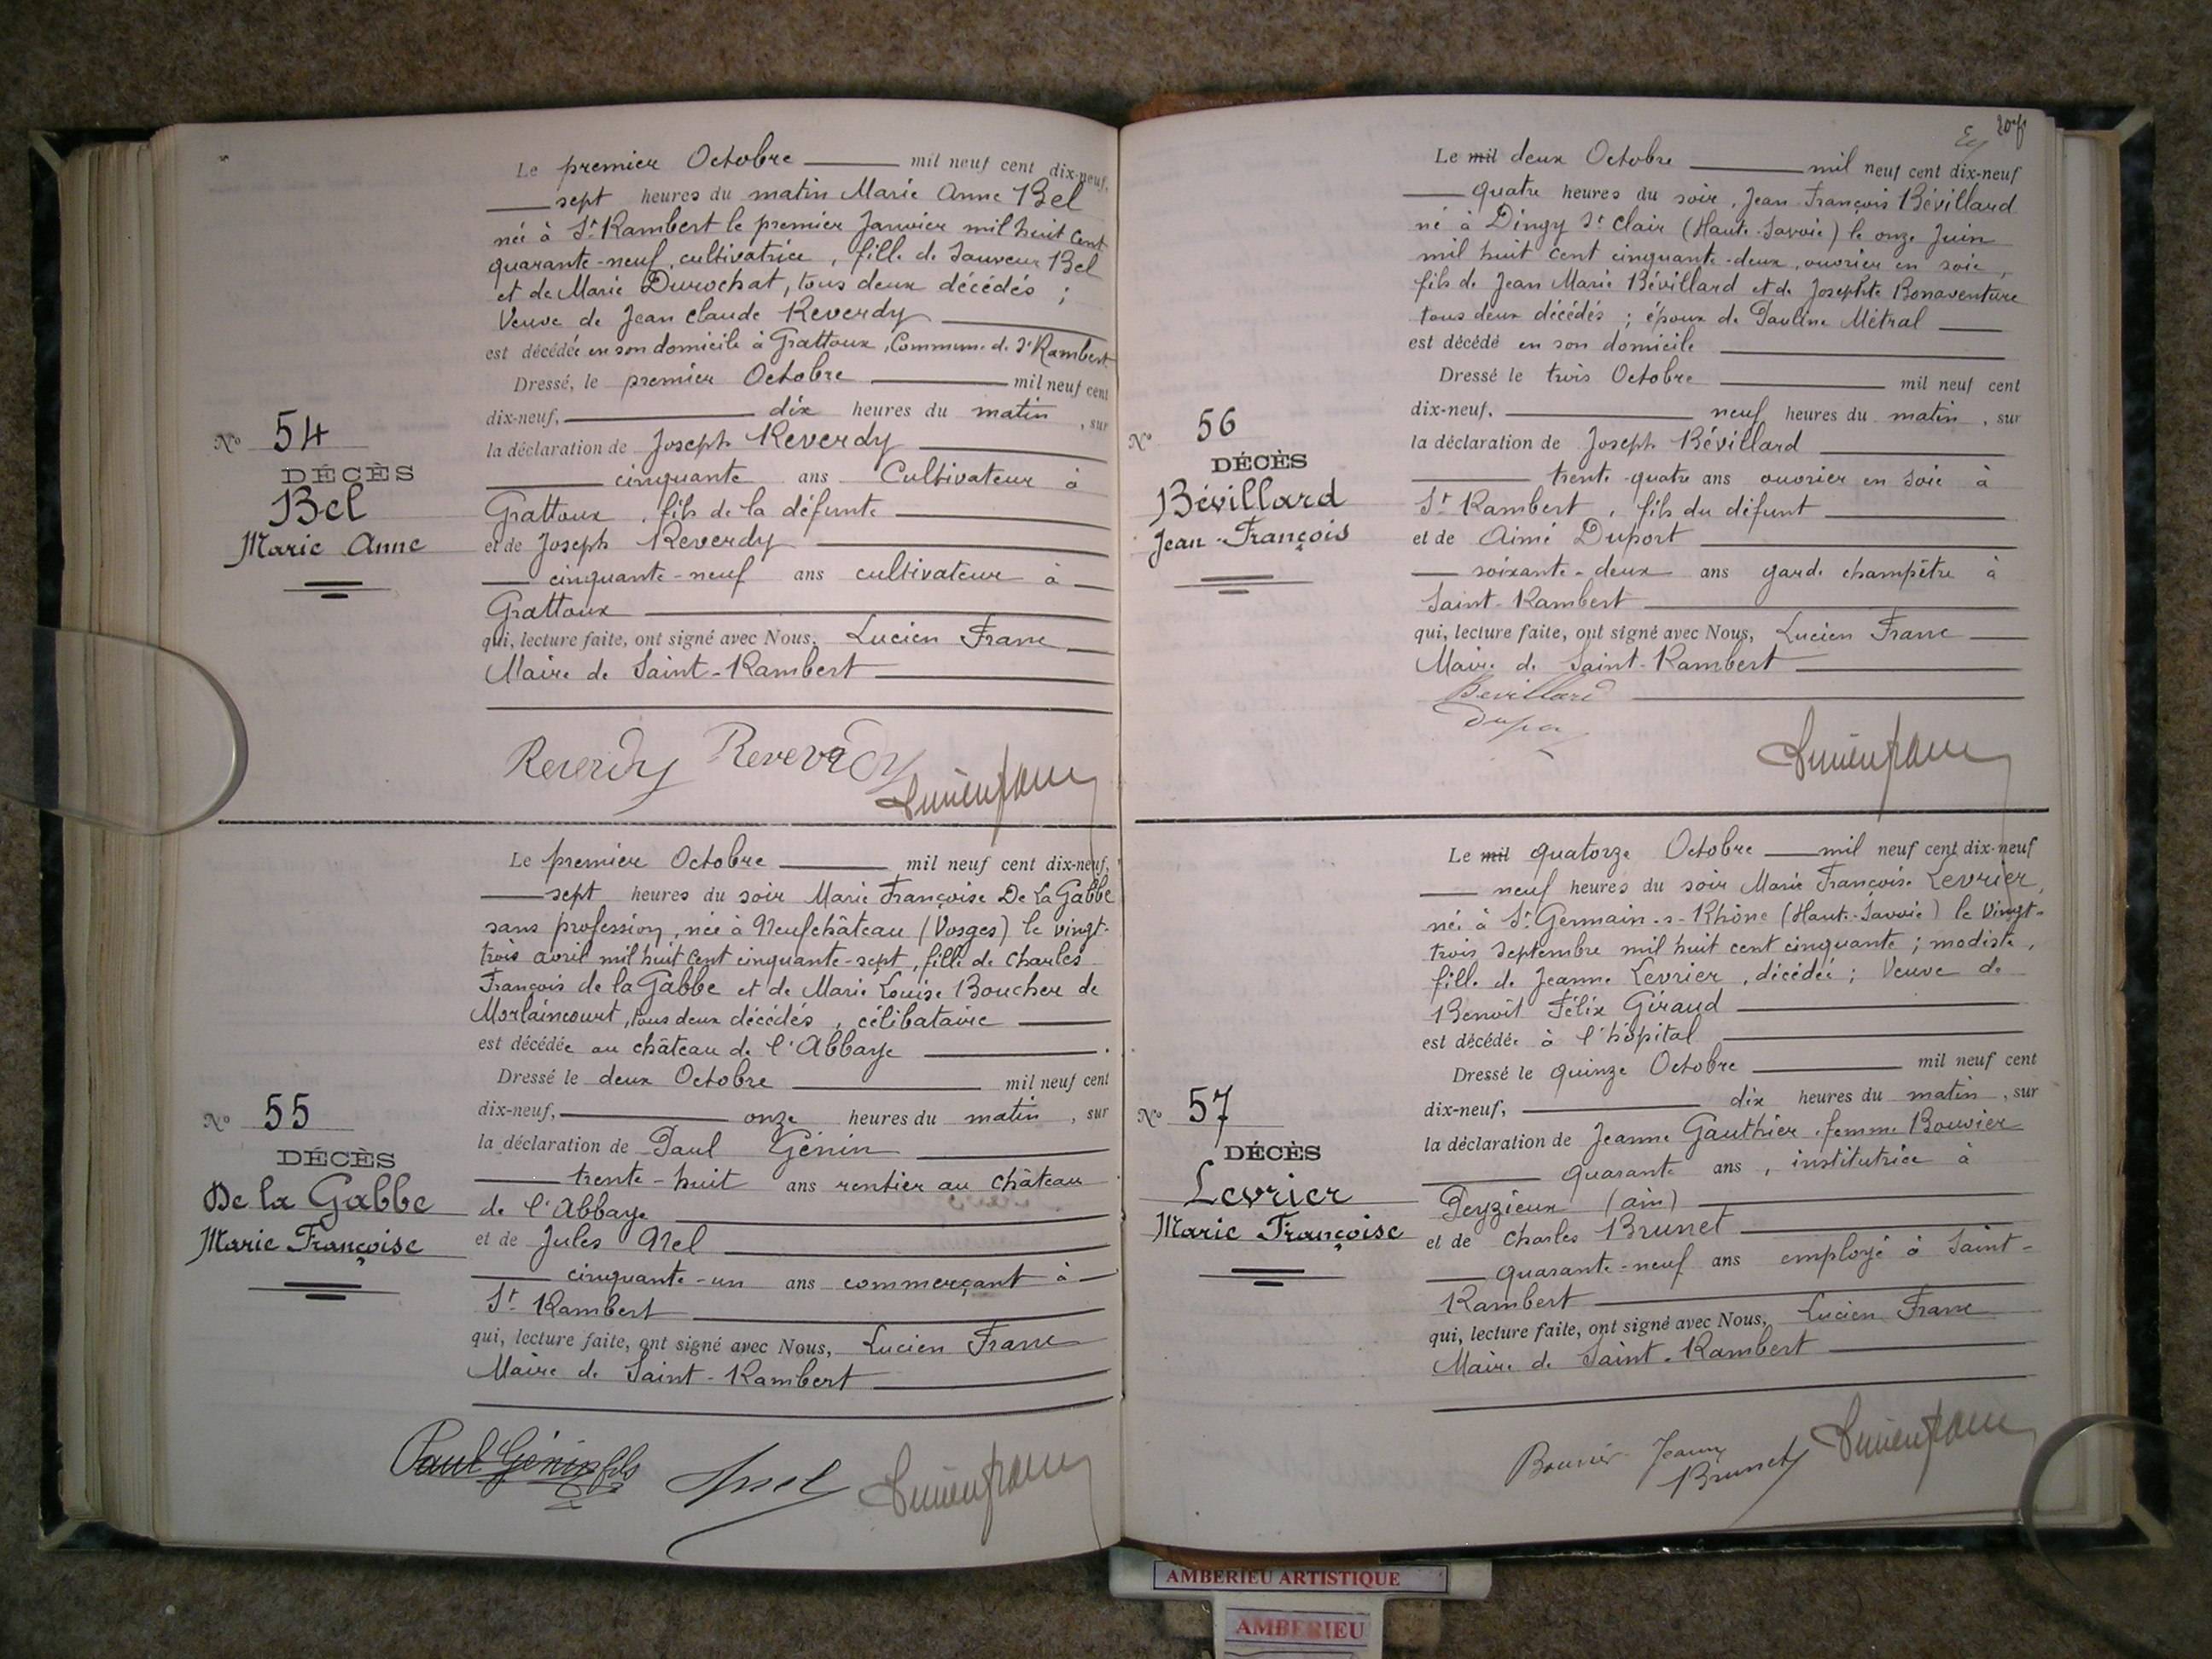 Le premier Octobre mil neuf cent dix-neuf,
sept heures du matin Marie Anne Bel
née à St Rambert le premier Janvier mil huit cent
quarante-neuf, cultivatrice, fille de Sauveur Bel
et de Marie Durochat, tous deux décédés ;
Veuve de Jean Claude Reverdy
est décédée en son domicile à Grattoux, Commune de St Rambert.
Dressé, le premier Octobre mil neuf cent
dix-neuf, dix heures du matin, sur
la déclaration de Joseph Reverdy
cinquante ans Cultivateur à
Grattoux, fils de la défunte
et de Joseph Reverdy
cinquante-neuf ans cultivateur à
Grattoux
qui, lecture faite, ont signé avec Nous, Lucien Franc
Maire de Saint-Rambert
No 54
DÉCÈS
Bel
Marie Anne
Reverdy Reverdy
Lucien Franc
Le premier Octobre mil neuf cent dix-neuf,
sept heures du soir Marie Françoise De La Gabbe
sans profession, née à Neufchâteau (Vosges) le vingt-
trois avril mil huit cent cinquante-sept, fille de Charles
François de la Gabbe et de Marie Louise Boucher de
Morlaincourt, tous deux décédés, célibataire
est décédée au château de l'Abbaye .
Dressé le deux Octobre mil neuf cent
dix-neuf, onze heures du matin, sur
la déclaration de Paul Génin
trente-huit ans rentier au château
de l'Abbaye
et de Jules Nel
cinquante-un ans commerçant à
St Rambert
qui, lecture faite, ont signé avec Nous, Lucien Franc
Maire de Saint-Rambert
No 55
DÉCÈS
De la Gabbe
Marie Françoise
Paul Génin fils Nel Lucien Franc
Le mil deux Octobre mil neuf cent dix-neuf
quatre heures du soir, Jean François Bévillard
né à Dingy St Clair (Haute-Savoie) le onze Juin
mil huit cent cinquante-deux, ouvrier en soie,
fils de Jean Marie Bévillard et de Josephte Bonaventure
tous deux décédés ; époux de Pauline Métral
est décédé en son domicile
Dressé le trois Octobre mil neuf cent
dix-neuf, neuf heures du matin, sur
la déclaration de Joseph Bévillard
trente-quatre ans ouvrier en soie à
St Rambert, fils du défunt
et de Aimé Duport
soixante-deux ans garde champêtre à
Saint-Rambert
qui, lecture faite, ont signé avec Nous, Lucien Franc
Maire de Saint-Rambert
No 56
DÉCÈS
Bévillard
Jean-François
Bevillard
Lucien Franc
Le mil quatorze Octobre mil neuf cent dix-neuf
neuf heures du soir Marie Françoise Levrier,
née à St Germain-s-Rhône (Haute-Savoie) le vingt-
trois Septembre mil huit cent cinquante ; modiste,
fille de Jeanne Levrier, décédée ; Veuve de
Benoît Félix Giraud
est décédée à l'hôpital
Dressé le quinze Octobre mil neuf cent
dix-neuf, dix heures du matin, sur
la déclaration de Jeanne Gauthier, femme Bouvier
quarante ans, institutrice à
Peyzieux (ain)
et de Charles Brunet
quarante-neuf ans employé à Saint-
Rambert
qui, lecture faite, ont signé avec Nous, Lucien Franc
Maire de Saint-Rambert
No 57
DÉCÈS
Levrier
Marie Françoise
Bouvier Jeanne
Brunet
Lucien Franc
AMBERIEU ARTISTIQUE
AMBERIEU